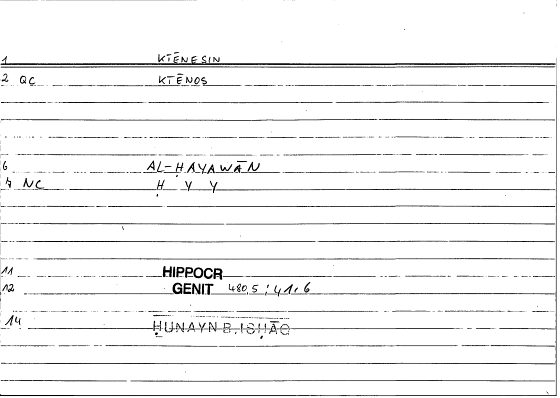 1 KTĒNESIN
2 QC KTĒNOS
6 AL-ḤAYAWĀN
7 NC Ḥ Y Y
11 HIPPOCR
12 GENIT 480,5 ; 41,6
14 ḤUNAYN B. ISḤĀQ